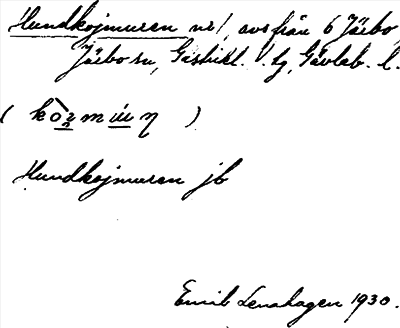 Hundkojmuren nr 1, avs från 6 Järbo,
Järbo sn, Gästrikl. v. hg, Gävleb. l.
( kòzmɯ́ŋ )
Hundkojmuren jb
Emil Lenshagen 1930.